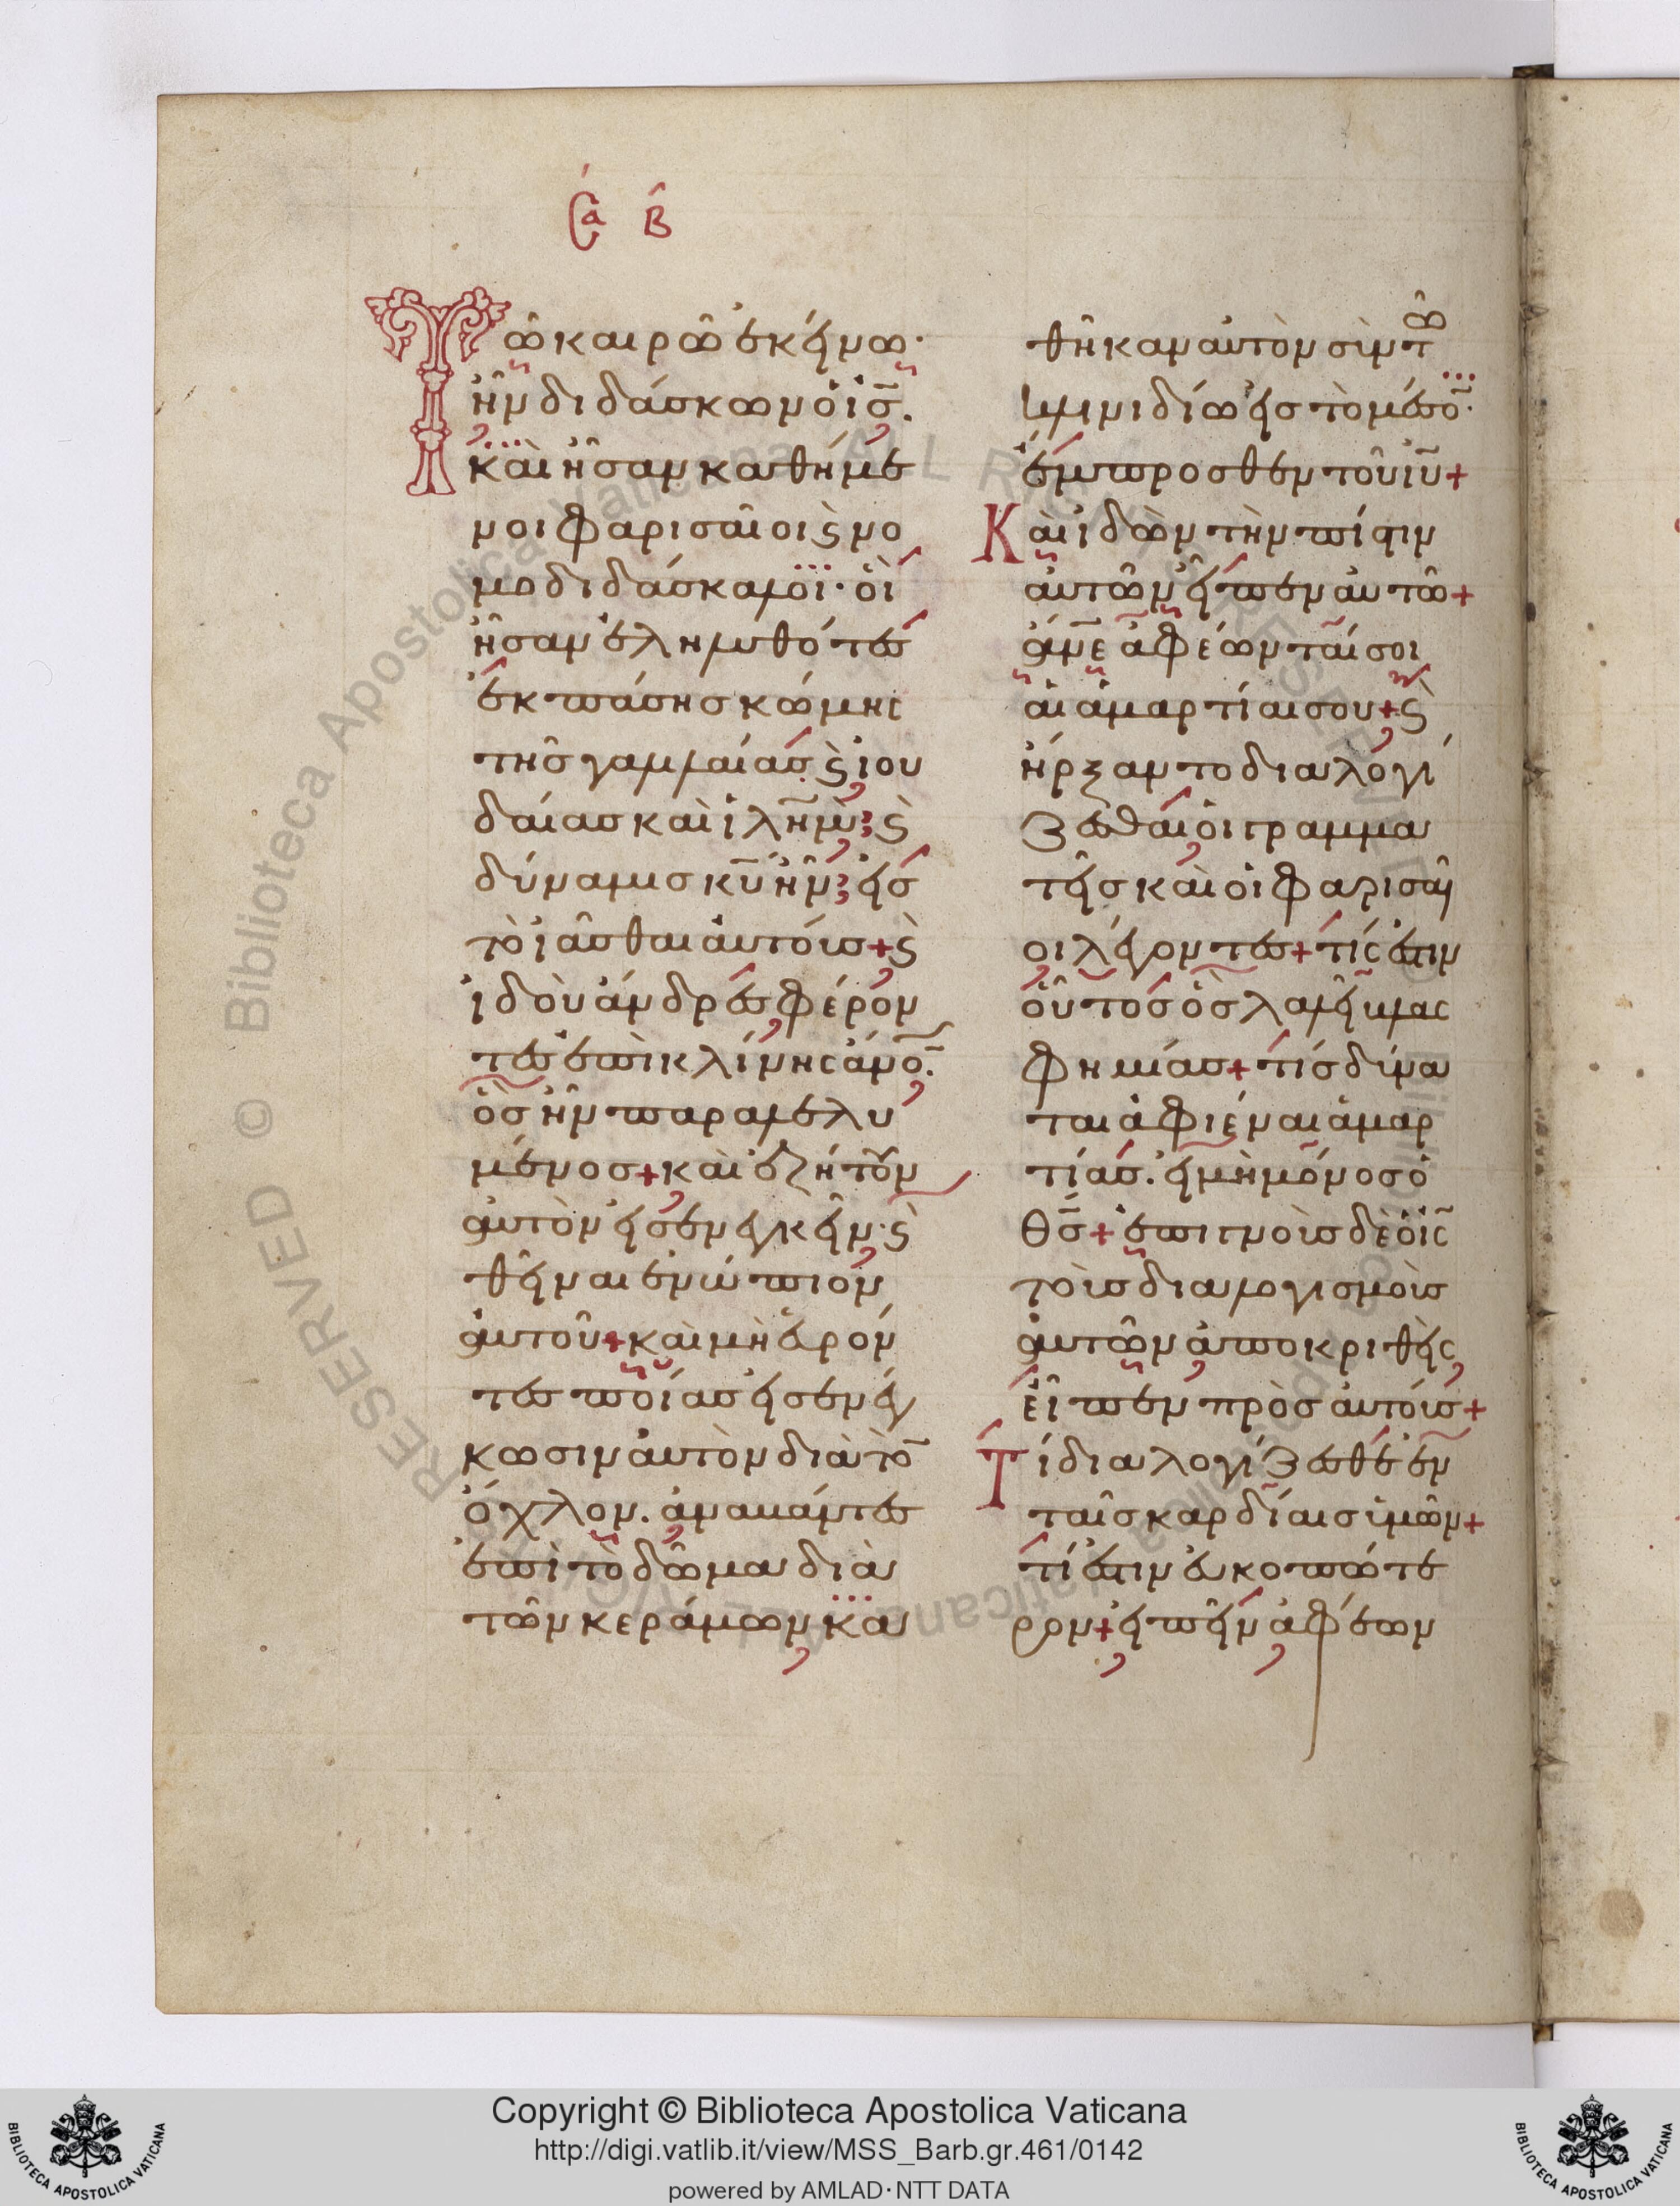 Σα Β
Τῶ καιρῶ ἐκείνω·
ἦν διδάσκων ὁ ἰς̅.
καὶ ἦσαν καθήμε
νοι φαρισαῖοι ϛ νο
μοδιδάσκαλοι· οἳ
ἦσαν ἐληλυθότες
ἐκ πάσης κώμης
τῆς γαλλαίας ϛ ἰου
δαίας καὶ ἰλη̅μ· ϛ
δύναμις κυ̅ ἦν· εἰς
τὸ ἰᾶσθαι αὐτούς+ ϛ
ἰδοὺ ἄνδρες φέρον
τες ἐπὶ κλίνης ἀνο̅.
ὃς ἦν παραλελυ
μένος+ καὶ ἐζήτουν
αὐτὸν εἰσενεγκεῖν· ϛ
θεῖναι ἐνώπιον
αὐτοῦ+ καὶ μὴ εὑρόν
τες ποίας εἰσενέγ
κωσιν αὐτὸν διὰ το̅
ὄχλον. ἀναβάντες
ἐπὶ τὸ δῶμα διὰ
τῶν κεράμων κα
θῆκαν αὐτὸν σὺν τῶ
κλινιδίω εἰς τὸ μέσο̅·
ἔμπροσθεν τοῦ ἰυ̅+
Καὶ ἰδὼν τὴν πίστιν
αὐτῶν εἶπεν αὐτῶ+
ἄν̅ε ἀφέωνταί σοι
αἱ ἁμαρτίαι σου+ ϛ
ἤρξαντο διαλογί
ζεσθαι οἱ γραμμα
τεῖς καὶ οἱ φαρισαῖ
οι λέγοντες+ τίς ἐστιν
οὗτος ὃς λαλεῖ βλας
φημίας+ τίς δύνα
ται ἀφιέναι ἁμαρ
τίας. εἰ μὴ μόνος ὁ
θς̅+ ἐπιγνοὺς δὲ ὁ ἰς̅
τοὺς διαλογισμοὺς
αὐτῶν ἀποκριθεὶς
εἶπεν πρὸς αὐτούς+
Τί διαλογίζεσθε ἐν
ταῖς καρδίαις ὑμῶν+
τί ἐστιν εὐκοπώτε
ρον+ εἰπεῖν ἀφέων
Copyright © Biblioteca Apostolica Vaticana
http://digi.vatlib.it/view/MSS_Barb.gr.461/0142
powered by AMLAD·NTT DATA